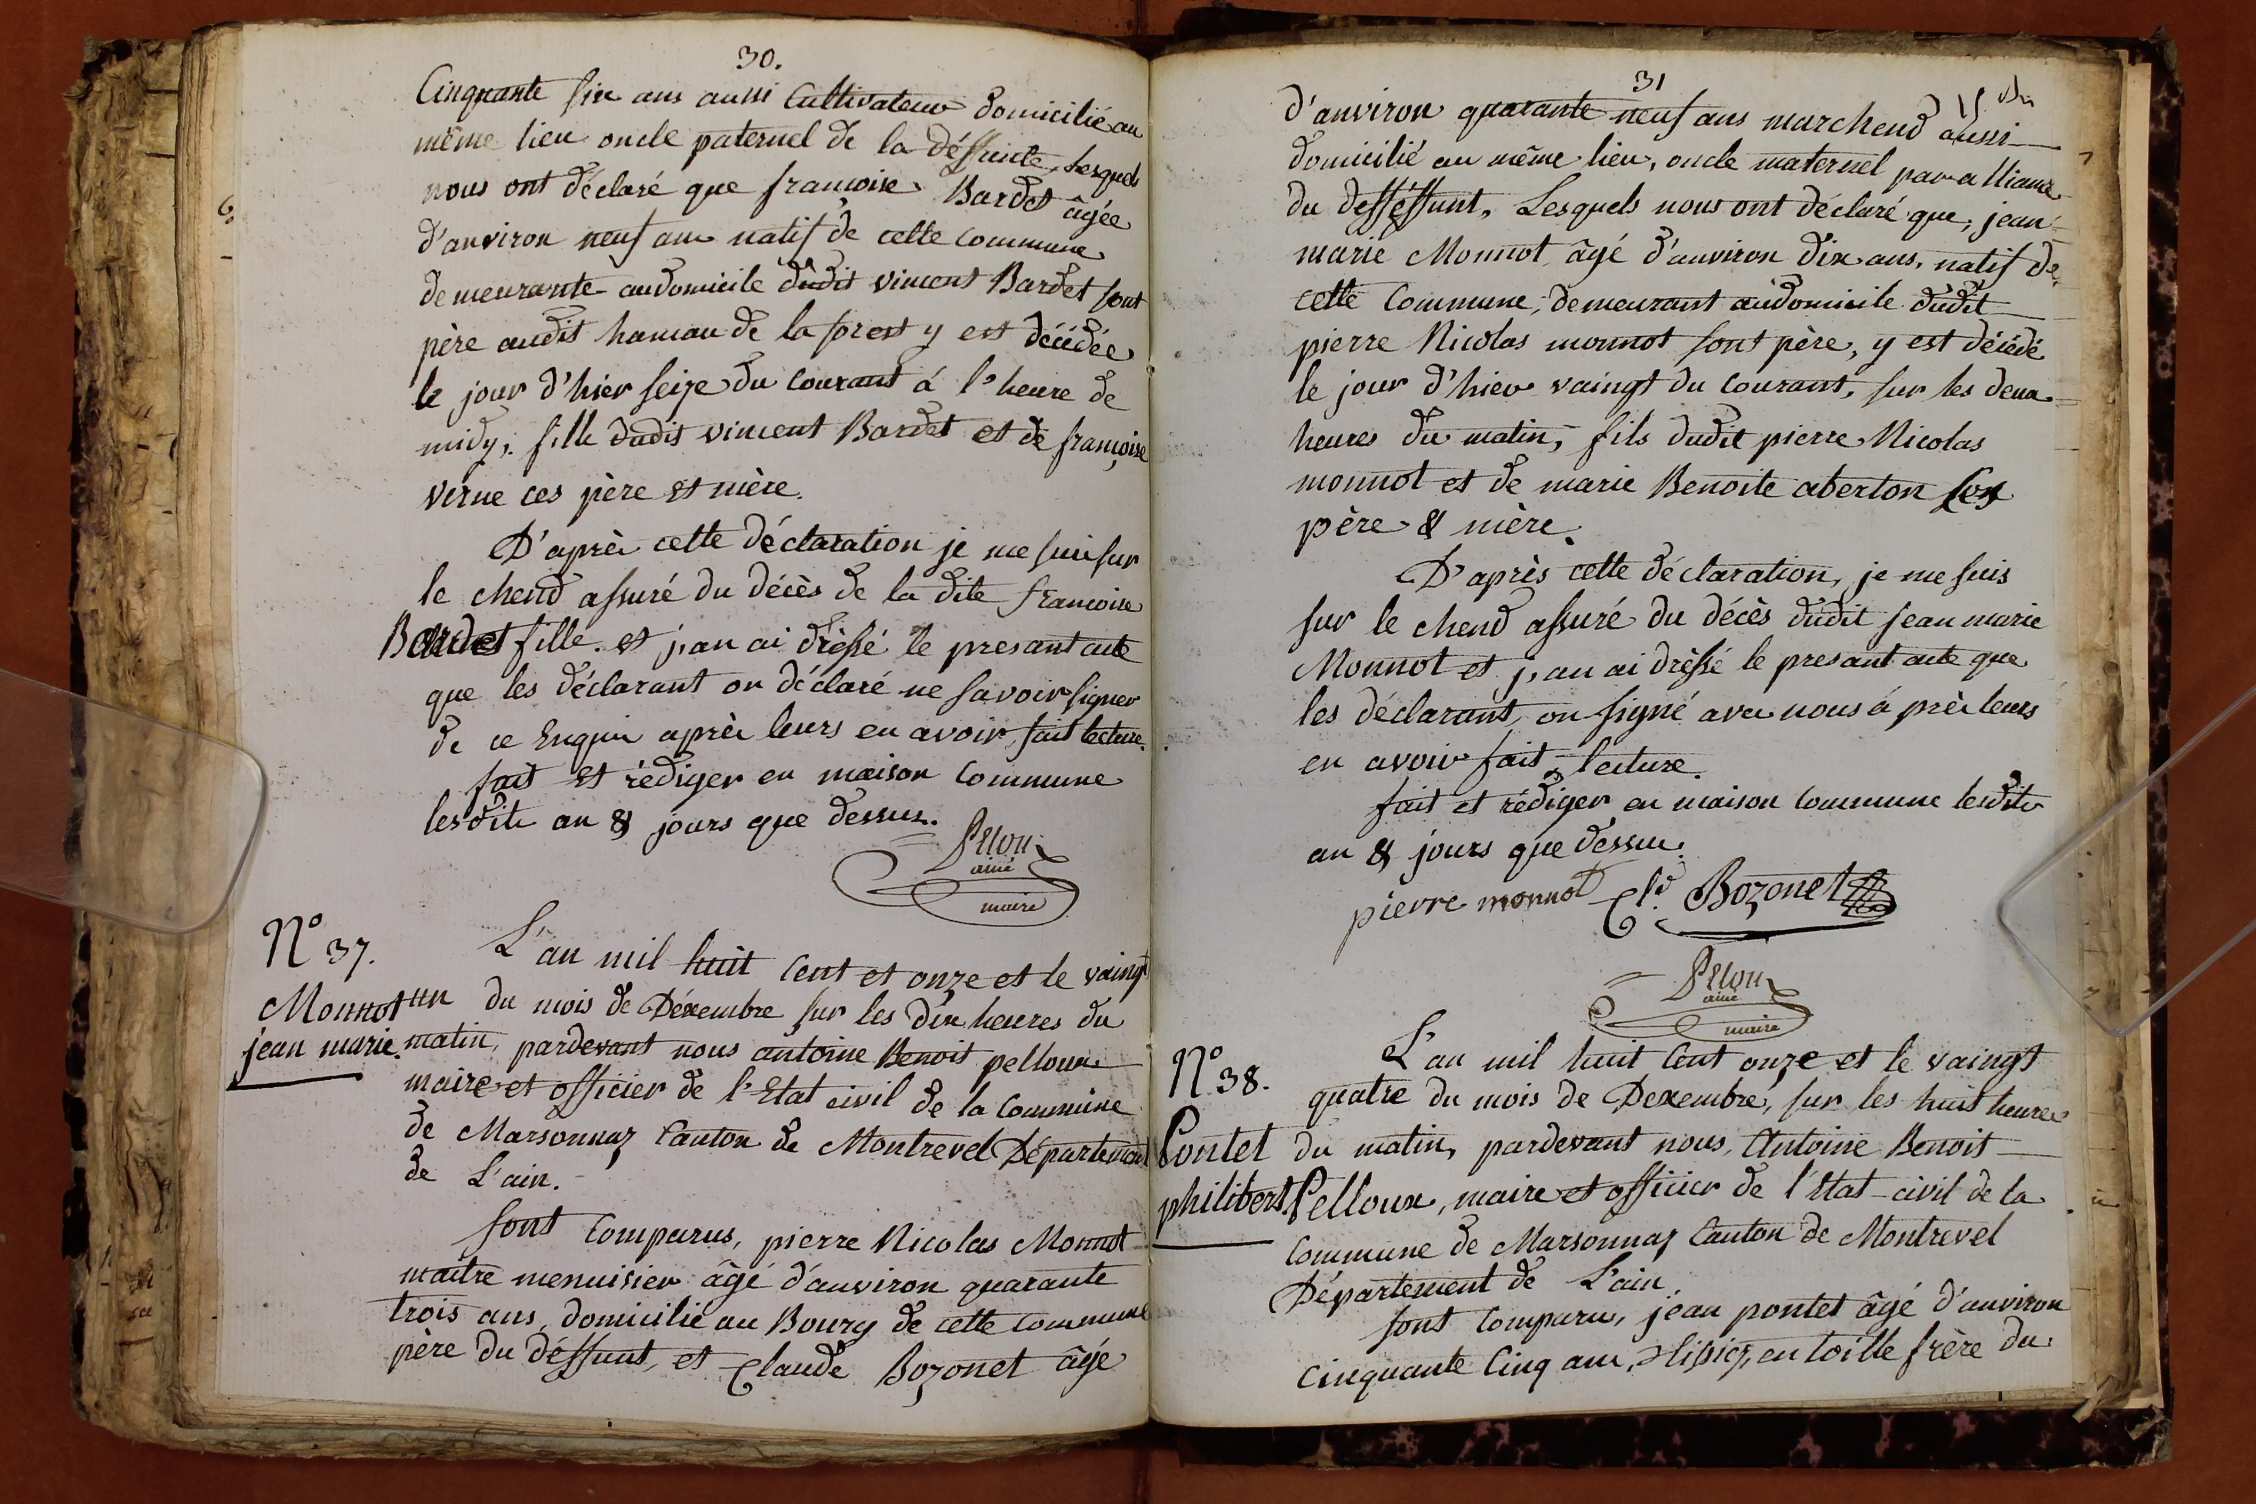 30.
Cinquante six ans aussi Cultivateur domicilié au
même lieu oncle paternel de la déffunte, Lesquels
nous ont déclaré que francoise Bardet âgée
d'anviron neuf ans natif de cette commune
demeurante audomicile dudit vincent Bardet sont
père audit hamau de la forest y est décédée
le jour d'hier seize du courant á l'heure de
midy, fille dudit vincent Bardet et de françoise
verne ces père et mère.
D'après cette déclaration je me suis sur
le chend assuré du décès de la dite francoise
Bardet fille. et j,an ai dréssé le presant acte
que les déclarant on déclaré ne savoir signer
de ce Enquis après leurs en avoir fait lecture.
fait et rédiger en maison commune
lesdits an & jours que dessus.
Pelloux
ainé
maire
N° 37.
Monnot
jean marie.
L'an mil huit cent et onze et le vaingt
un du mois de Décembre sur les dix heures du
matin, pardevant nous antoine Benoit pelloux
maire et officier de l'Etat civil de la commune
de Marsonnaz Canton de Montrevel Département
de L'ain.
sont comparus, pierre Nicolas Monnot
maitre menuisier âgé d'anviron quarante
trois ans, domicilié au Bourg de cette commune
père du déffunt, et Claude Bozonet âgé
31
d'anviron quarante neuf ans marchend aussi
domicilié au même lieu, oncle maternel par alliance
du desséffunt, Lesquels nous ont déclaré que, jean
marie Monnot âgé d'anviron dix ans, natif de
cette Commune, demeurant audomicile dudit
pierre Nicolas monnot sont père, y est décédé
le jour d'hier vaingt du courant, sur les deux
heures du matin, fils dudit pierre Nicolas
monnot et de marie Benoite aberton ses
père & mère.
D'après cette déclaration, je me suis
sur le chend assuré du décès dudit jean marie
Monnot et j,an ai dréssé le presant acte que
les déclarant on signé avec nous á près leurs
en avoir fait lecture.
fait et rédiger en maison commune lesdits
an & jours que dessus.
pierre monnot Cld Bozonet
Pelloux
ainé
maire
N° 38.
Pontet
philibert.
L'an mil huit cent onze et le vaingt
quatre du mois de Décembre, sur les huit heures
du matin, pardevant nous, Antoine Benoit
Pelloux, maire et officier de l'état civil de la
commune de Marsonnaz Canton de Montrevel
Département de L'ain.
sont comparu, jean pontet âgé d'anviron
cinquante cinq ans, tissier, en toille frère du